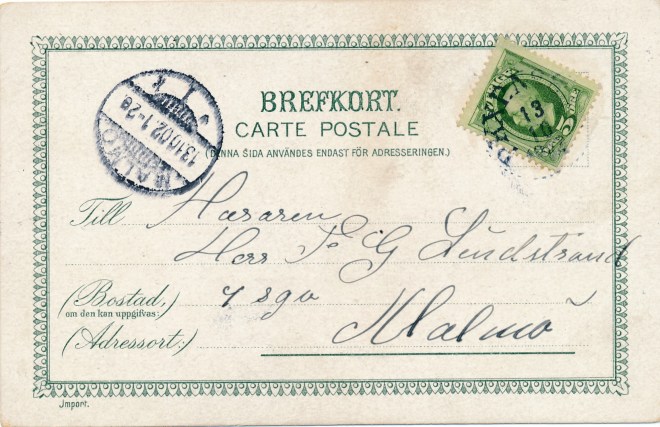 BREFKORT.
CARTE POSTALE
(DENNA SIDA ANVÄNDES ENDAST FÖR ADRESSERINGEN.)
MALMÖ
13 10 02. 1-2e
13
10
Till Husaren
Herr F G Lindstrand
4 sqv
(Bostad,)
om den kan uppgifvas:
(Adressort:)
Malmö
Import.